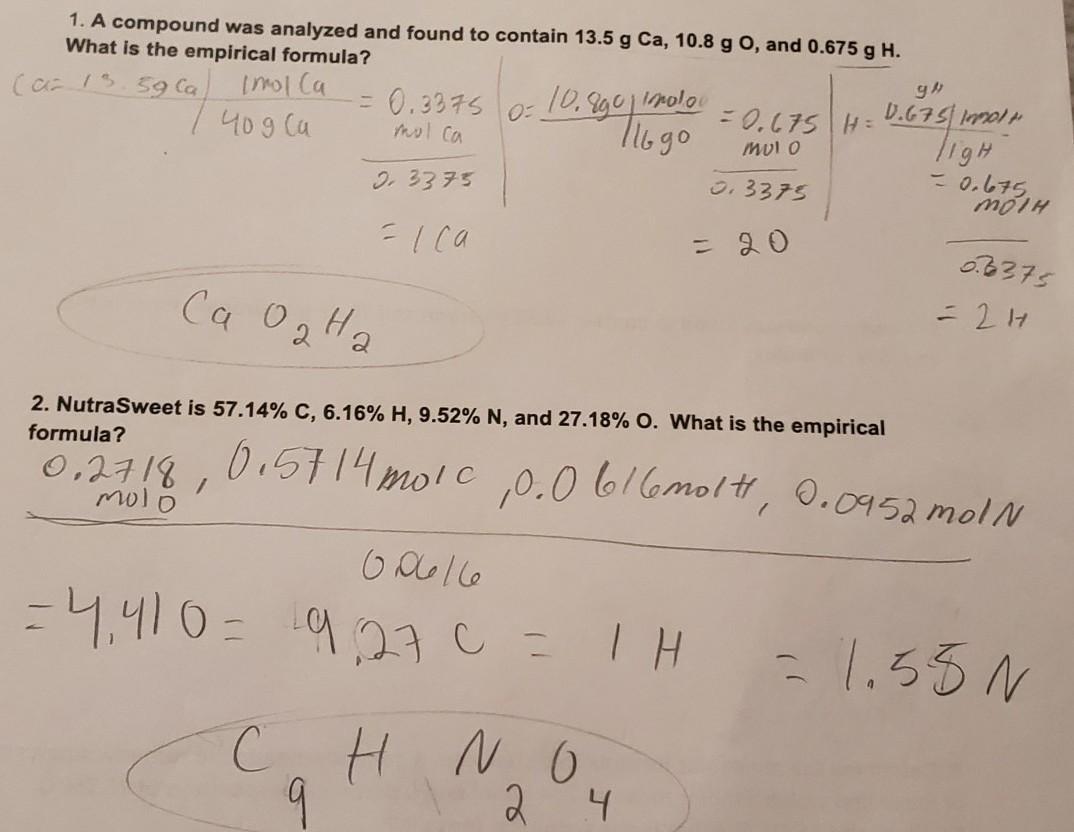 1. A compound was analyzed and found to contain 13.5 g Ca, 10.8 g O, and 0.675 g H.
What is the empirical formula?
Ca= 13.5g Ca | 1mol Ca
/ 40 g Ca
= 0.3375
mol Ca
0.3375
= 1 Ca
O= 10.8g O | 1mol O
/ 16 g O
= 0.675
mol O
0.3375
= 2 O
H= 0.675 gH | 1mol H
/ 1 g H
= 0.675
mol H
0.3375
= 2 H
Ca O2 H2
2. NutraSweet is 57.14% C, 6.16% H, 9.52% N, and 27.18% O. What is the empirical
formula?
0.2718 mol O, 0.5714 mol C, 0.0616 mol H, 0.0952 mol N
0.0616
= 4.41 O = 9.27 C = 1 H = 1.55 N
C9 H N2 O4